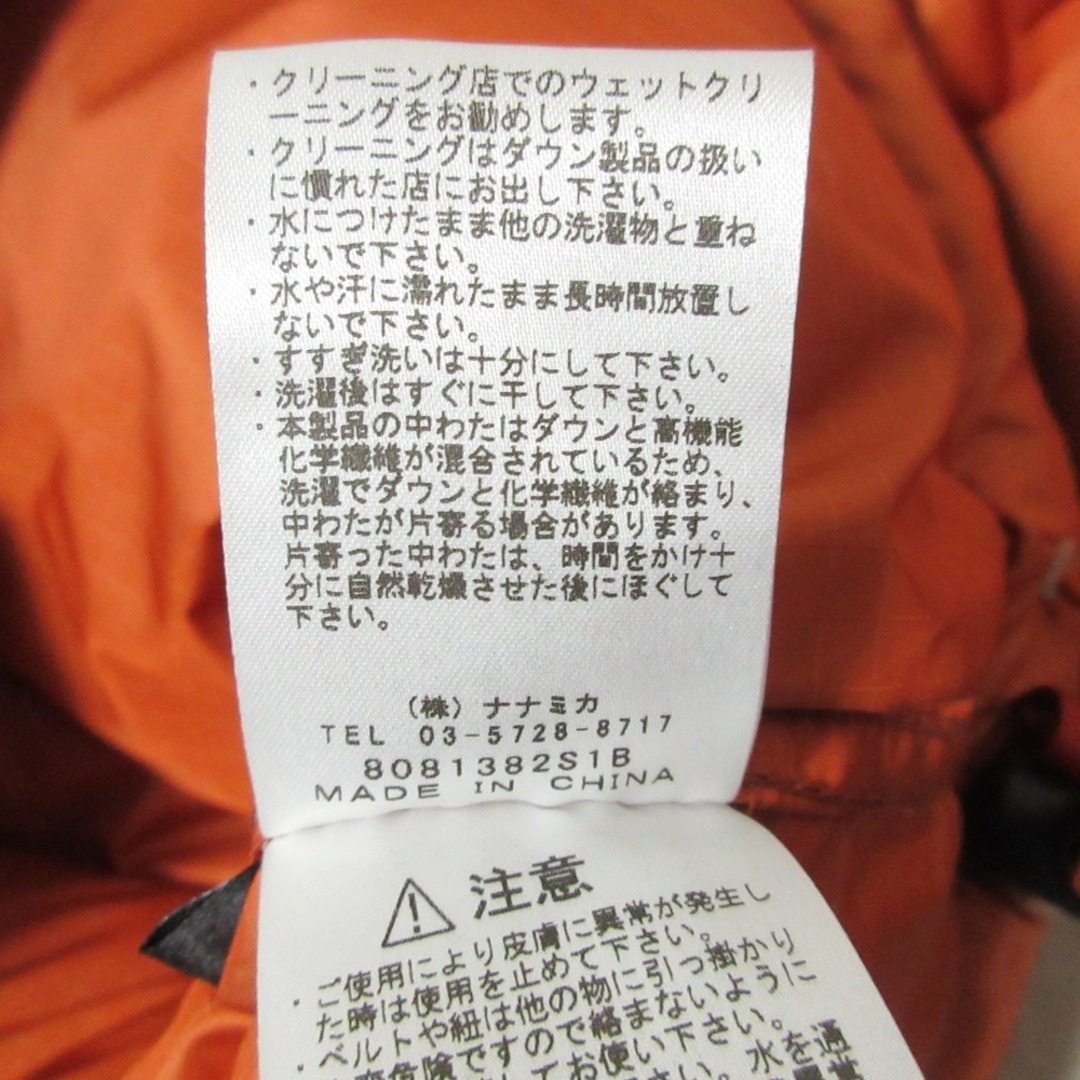 ・クリーニング店でのウェットクリ
ーニングをお勧めします。
・クリーニングはダウン製品の扱い
に慣れた店にお出し下さい。
・水につけたまま他の洗濯物と重ね
ないで下さい。
・水や汗に濡れたまま長時間放置し
ないで下さい。
・すすぎ洗いは十分にして下さい。
・洗濯後はすぐに干して下さい。
・本製品の中わたはダウンと高機能
化学繊維が混合されているため、
洗濯でダウンと化学繊維が絡まり、
中わたが片寄る場合があります。
片寄った中わたは、時間をかけ十
分に自然乾燥させた後にほぐして
下さい。
(株)ナナミカ
TEL 03-5728-8717
8081382S1B
MADE IN CHINA
注意
・ご使用により皮膚に異常が発生し
た時は使用を止めて下さい。
・ベルトや紐は他の物に引っ掛かり
危険ですので絡まないように
してお使い下さい。
水を通